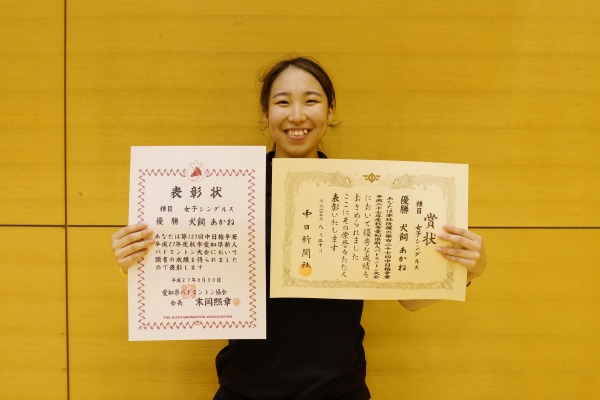 表彰状
種目 女子シングルス
優勝 犬飼あかね
あなたは第127回中日輪予賽
平成27年度秋季愛知県新人
バドミントン大会において
頭書の成績を得られました
ので表彰します
平成27年8月30日
愛知県バドミントン協会
会長 末岡熙章
THE AICHI BADMINTON ASSOCIATION
賞状
種目 女子シングルス
優勝 犬飼あかね
において優秀な成績を
おさめられました
ここにその栄誉をたたえ
表彰いたします
中日新聞社